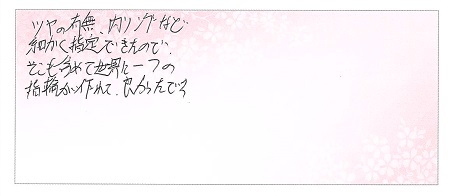 ツヤの有無、内リングなど
細かく指定できたので、
そこも含めて世界に一つの
指輪が作れて、良かったです